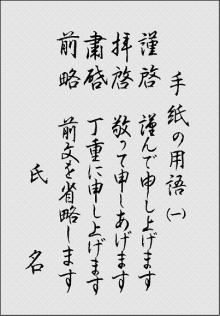 手紙の用語㈠
謹啓 謹んで申し上げます
拝啓 敬って申しあげます
粛啓 丁重に申し上げます
前略 前文を省略します
氏名